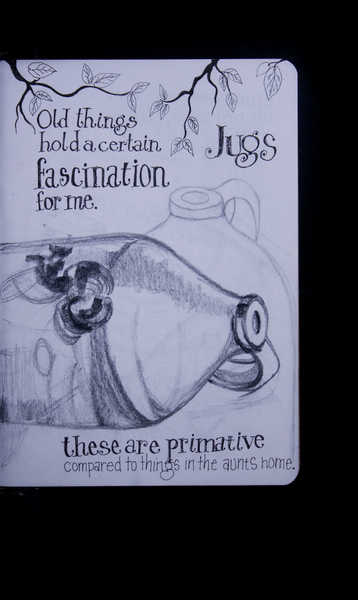 Old things
hold a certain
fascination
for me.
Jugs
these are primative
compared to things in the aunts home.